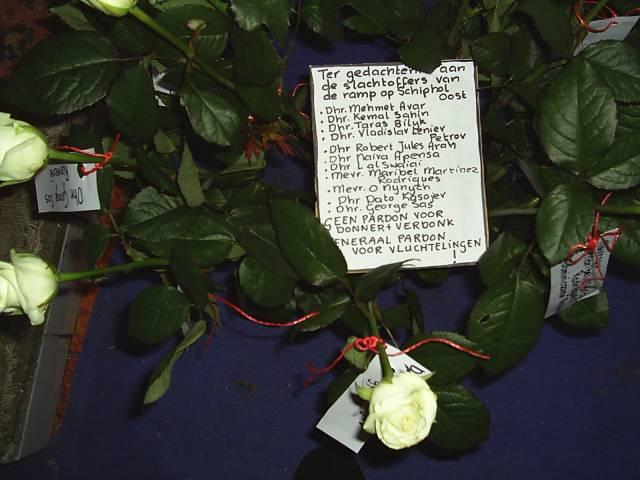 Ter gedachtenis aan
de slachtoffers van
de ramp op Schiphol
Oost
• Dhr. Mehmet Avar
• Dhr. Kemal Sahin
• Dhr. Taras Bilyk
• Dhr. Vladislav Leniev
Petrov
• Dhr Robert Jules Arah
• Dhr Naiva Apensa
• Dhr Lal Swaiai
• Mevr. Maribel Martinez
Rodriques
• Mevr. O Nynyth
• Dhr Dato Kasojev
• Dhr. George Sas
GEEN PARDON VOOR
DONNER + VERDONK
GENERAAL PARDON
VOOR VLUCHTELINGEN
!
Dhr
Sas